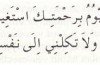 يُّومُ بِرَحْمَتِكَ اسْتَغِي
وَلَا تَكِلْنِي إِلَى نَفْسِ